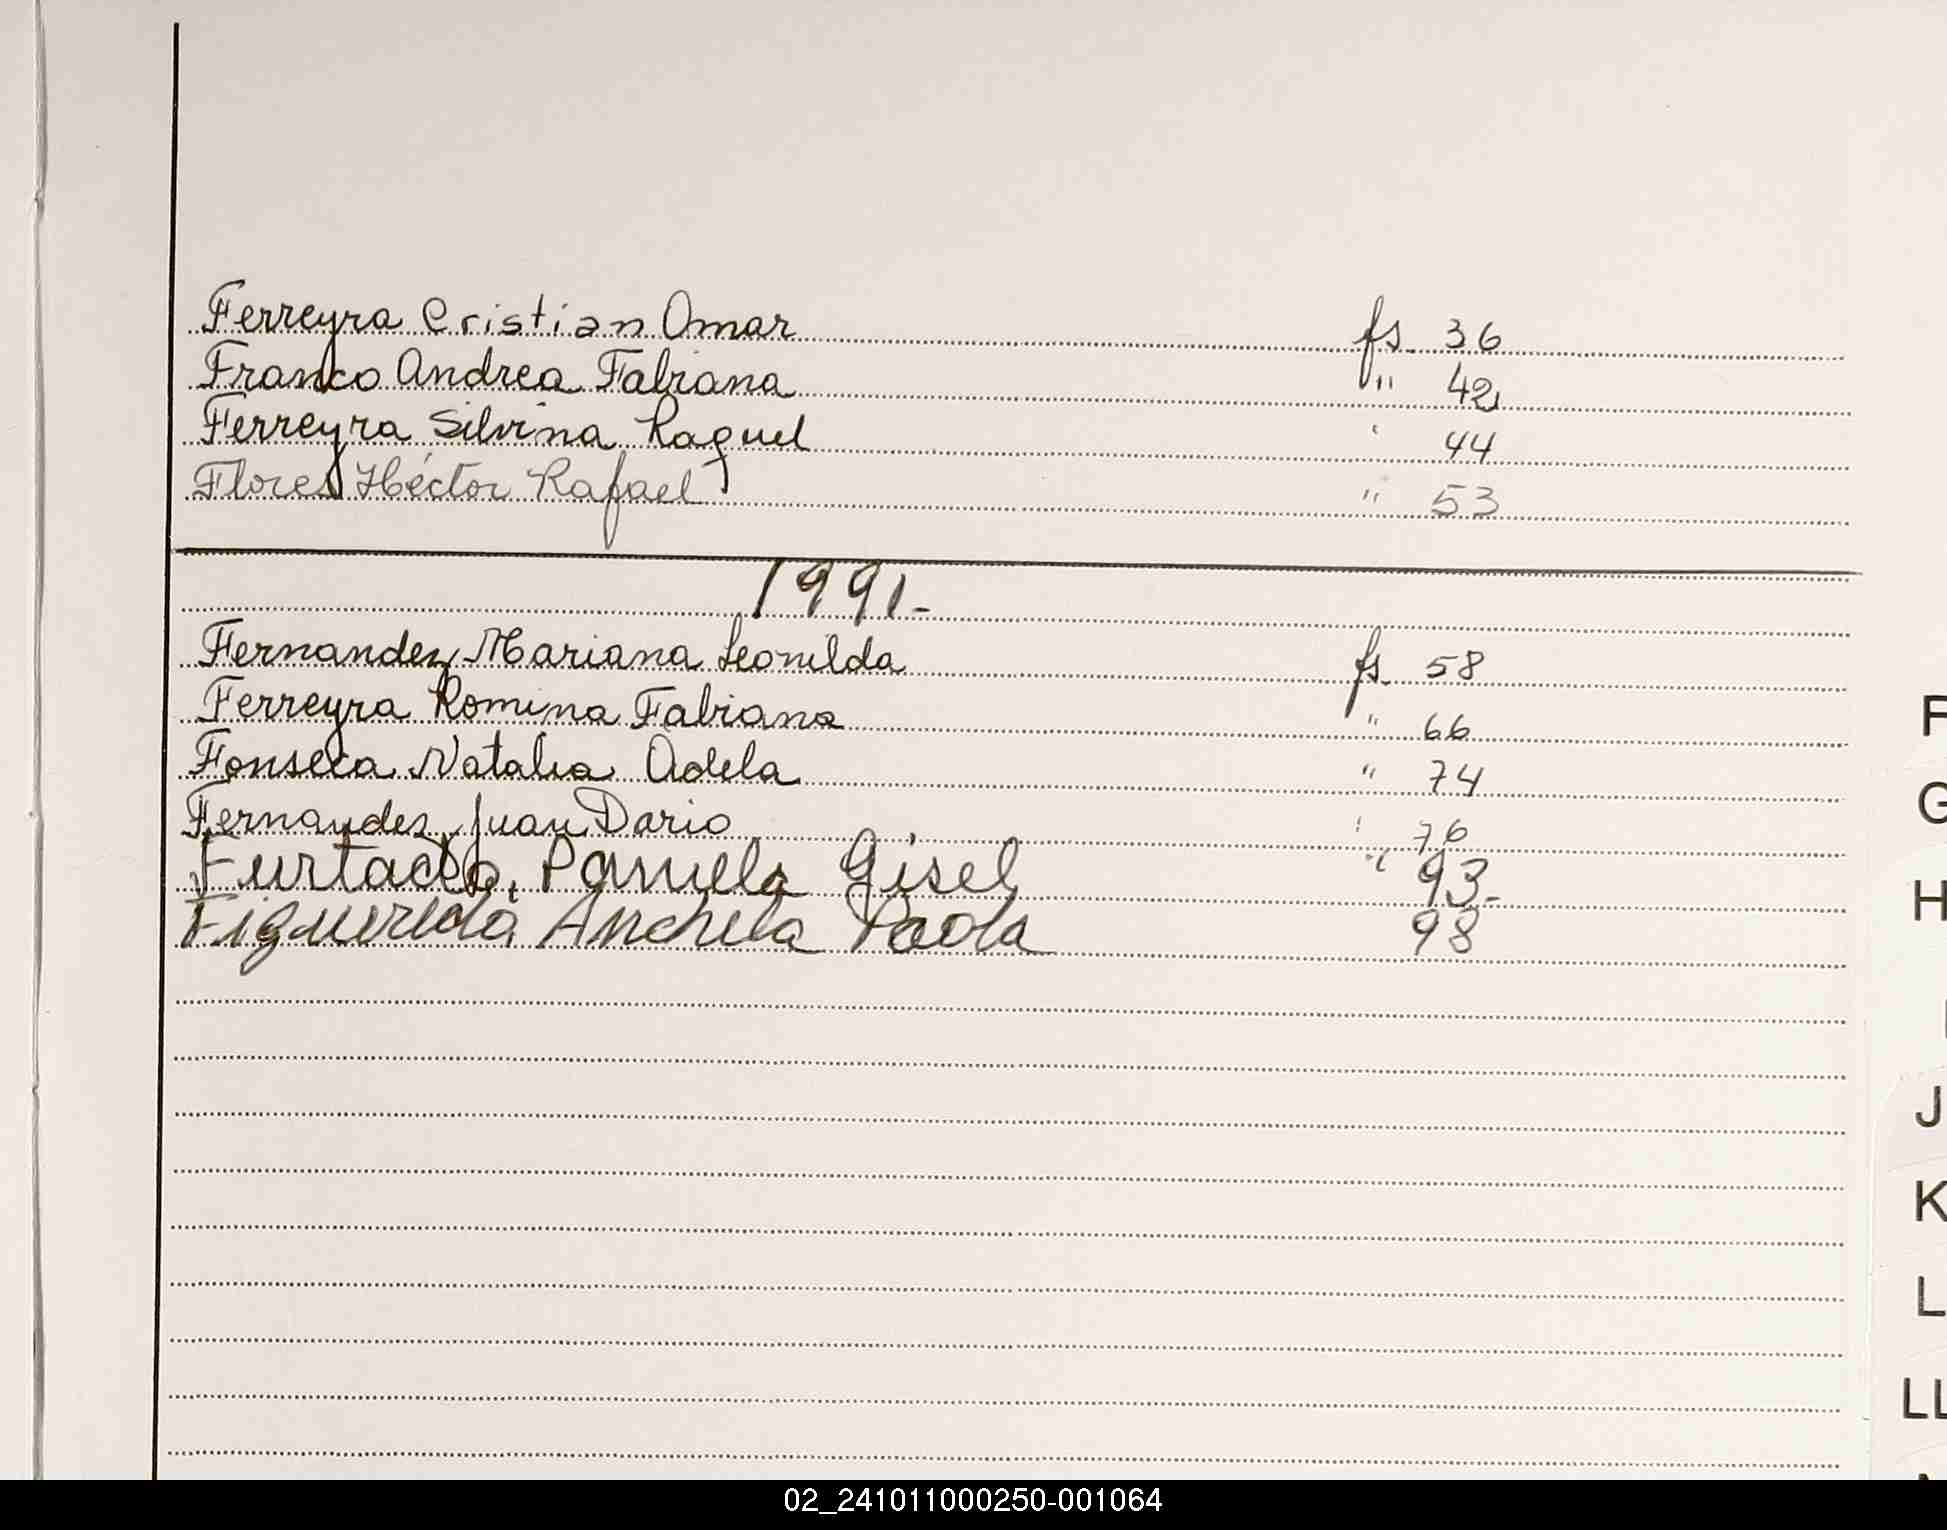 Ferreyra Cristian Omar fs. 36
Franco Andrea Fabiana " 42
Ferreyra Silvina Raquel ' 44
Flores Héctor Rafael " 53
1991-
Fernandez Mariana Leonilda fs. 58
Ferreyra Romina Fabiana " 66
Fonseca Natalia Adela " 74
Fernandez Juan Dario " 76
Furtado, Pamela Gisel " 93-
Paola 98
F
G
H
J
K
L
LL
02_241011000250-001064